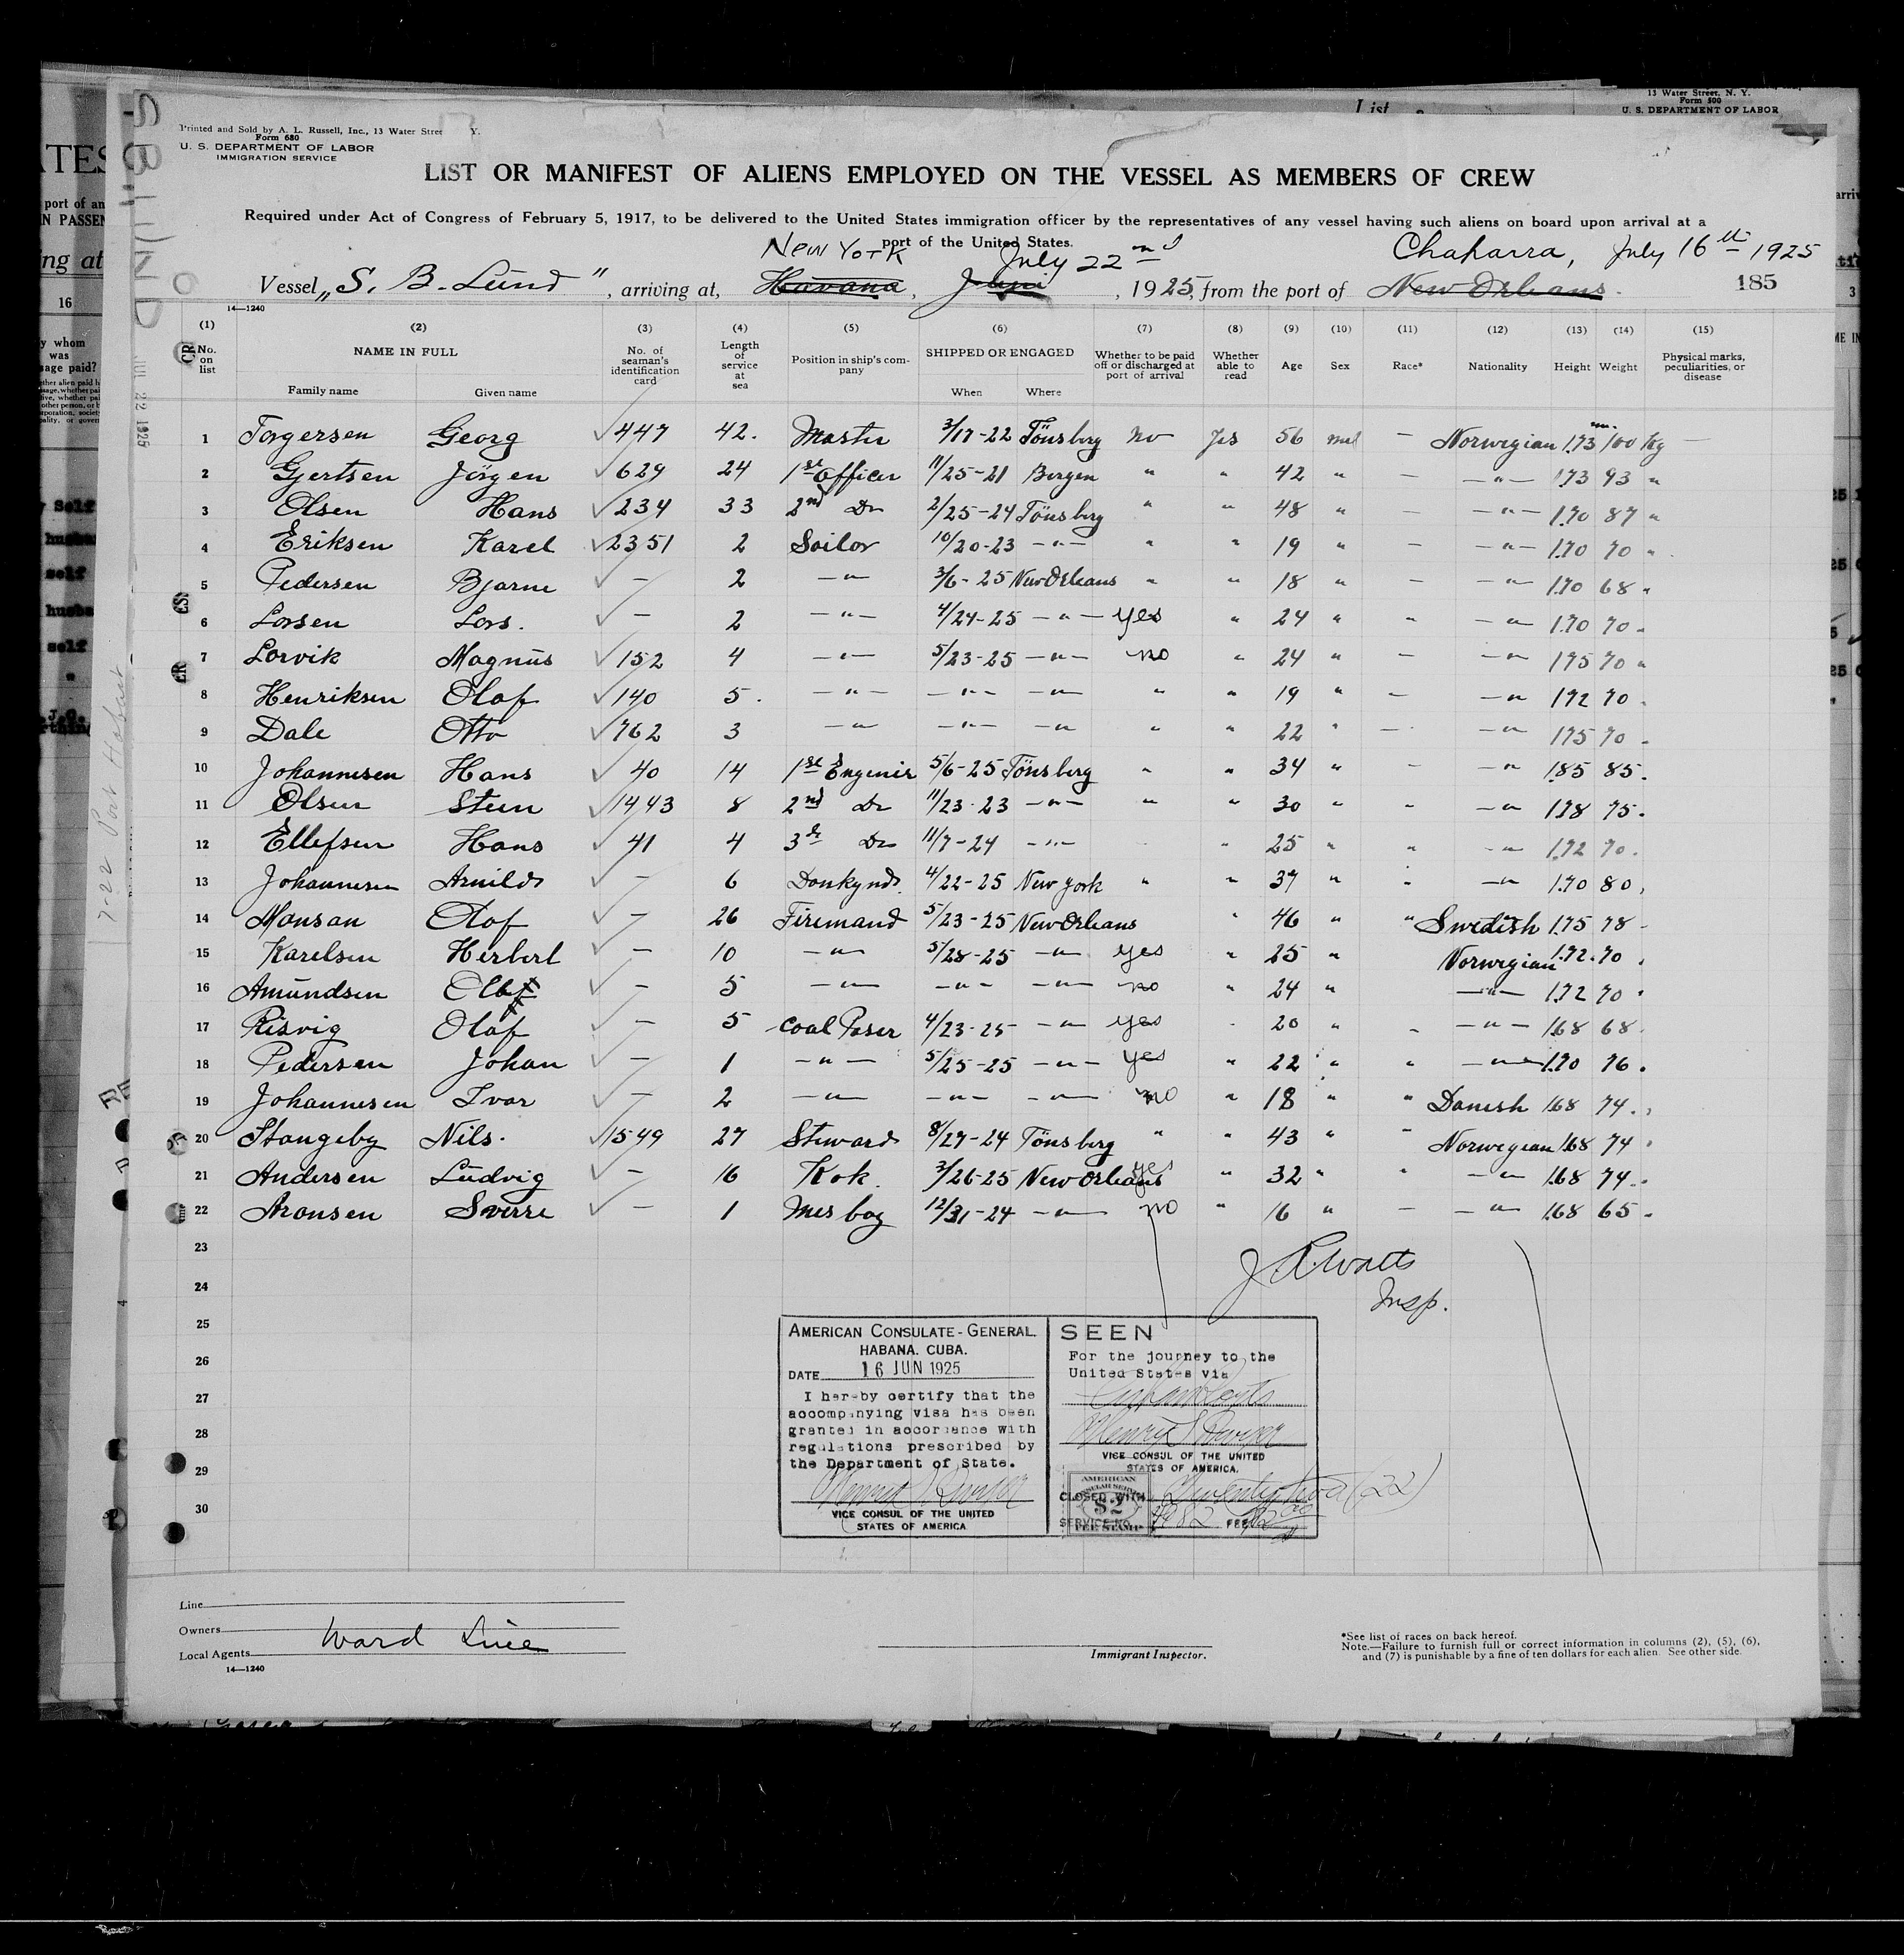 13 Water Street, N. Y.
Form 500
U. S. DEPARTMENT OF LABOR
List
Printed and Sold by A. L. Russell, Inc., 13 Water Stree Y.
Form 680
U. S. DEPARTMENT OF LABOR
IMMIGRATION SERVICE
LIST OR MANIFEST OF ALIENS EMPLOYED ON THE VESSEL AS MEMBERS OF CREW
Required under Act of Congress of February 5, 1917, to be delivered to the United States immigration officer by the representatives of any vessel having such aliens on board upon arrival at a
port of the United States.
New York July 22nd Chaparra, July 16th 1925
Vessel „S. B. Lund", arriving at, Havana, Juni, 1925, from the port of New Orleans. 185
14—1240
(1) (2) (3) (4) (5) (6) (7) (8) (9) (10) (11) (12) (13) (14) (15)
No. on list NAME IN FULL No. of seaman's identification card Length of service at sea Position in ship's company SHIPPED OR ENGAGED Whether to be paid off or discharged at port of arrival Whether able to read Age Sex Race* Nationality Height Weight Physical marks, peculiarities, or disease
Family name Given name When Where
1 Torgersen Georg 447 42. Master 3/17-22 Tönsberg no yes 56 mal — Norwegian 1.73 100 kg —
2 Gjertsen Jörgen 629 24 1st Officer 11/25-21 Bergen " " 42 " — —"— 1.73 93 "
3 Olsen Hans 234 33 2nd Do 2/25-24 Tönsberg " " 48 " — —"— 1.70 87 "
4 Eriksen Karel 2351 2 Sailor 10/20-23 —"— " " 19 " — —"— 1.70 70 "
5 Pedersen Bjarne — 2 —"— 3/6-25 New Orleans " " 18 " — —"— 1.70 68 "
6 Larsen Lars. — 2 —"— 4/24-25 —"— yes " 24 " " —"— 1.70 70 "
7 Larvik Magnus 152 4 —"— 5/23-25 —"— no " 24 " — —"— 1.75 70 "
8 Henriksen Olaf 140 5. —"— —"— —"— " " 19 " — —"— 1.72 70 "
9 Dale Otto 762 3 —"— —"— —"— " " 22 " — —"— 1.75 70 "
10 Johannesen Hans 40 14 1st Engenir 5/6-25 Tönsberg " " 34 " — —"— 1.85 85.
11 Olsen Steen 1443 8 2nd Do 11/23-23 —"— " " 30 " " —"— 1.78 75.
12 Ellefsen Hans 41 4 3d Do 11/7-24 —"— " 25 " " —"— 1.72 70.
13 Johannesen Arnilds — 6 Donkynd. 4/22-25 New York " " 37 " " —"— 1.70 80.
14 Monsan Olof — 26 Firemand 5/23-25 New Orleans " 46 " " Swedish 1.75 78
15 Karelsen Herbert — 10 —"— 5/28-25 —"— yes " 25 " Norwegian 1.72 70
16 Amundsen Olaf — 5 —"— —"— —"— no " 24 " —"— 1.72 70
17 Risvig Olaf — 5 Coal Paser 4/23-25 —"— yes 20 " —"— 1.68 68
18 Pedersen Johan — 1 —"— 5/25-25 —"— yes " 22 " " —"— 1.70 76.
19 Johannesen Ivar — 2 —"— —"— —"— no " 18 " " Danish 1.68 74.
20 Stangeby Nils. 1549 27 Steward 8/27-24 Tönsberg " " 43 " " Norwegian 1.68 74
21 Andersen Ludvig — 16 Kok. 3/26-25 New Orleans yes " 32 " " —"— 1.68 74.
22 Aronsen Sverre — 1 Mes boy 12/31-24 —"— no " 16 " — —"— 1.68 65
23
24
25
26
27
28
29
30
Insp.
AMERICAN CONSULATE-GENERAL.
HABANA. CUBA.
DATE 16 JUN 1925
I hereby certify that the
accompanying visa has been
granted in accordance with
regulations prescribed by
the Department of State.
VICE CONSUL OF THE UNITED
STATES OF AMERICA
SEEN
For the journey to the
United States via
VICE CONSUL OF THE UNITED
STATES OF AMERICA.
CLOSED WITH Twenty two (22)
SERVICE NO. FEE
AMERICAN
$2
FEE STAMP
Line
Owners
Local Agents Ward Line
14—1240
Immigrant Inspector.
*See list of races on back hereof.
Note.—Failure to furnish full or correct information in columns (2), (5), (6),
and (7) is punishable by a fine of ten dollars for each alien. See other side.
S B LUND
JUL 22 1925